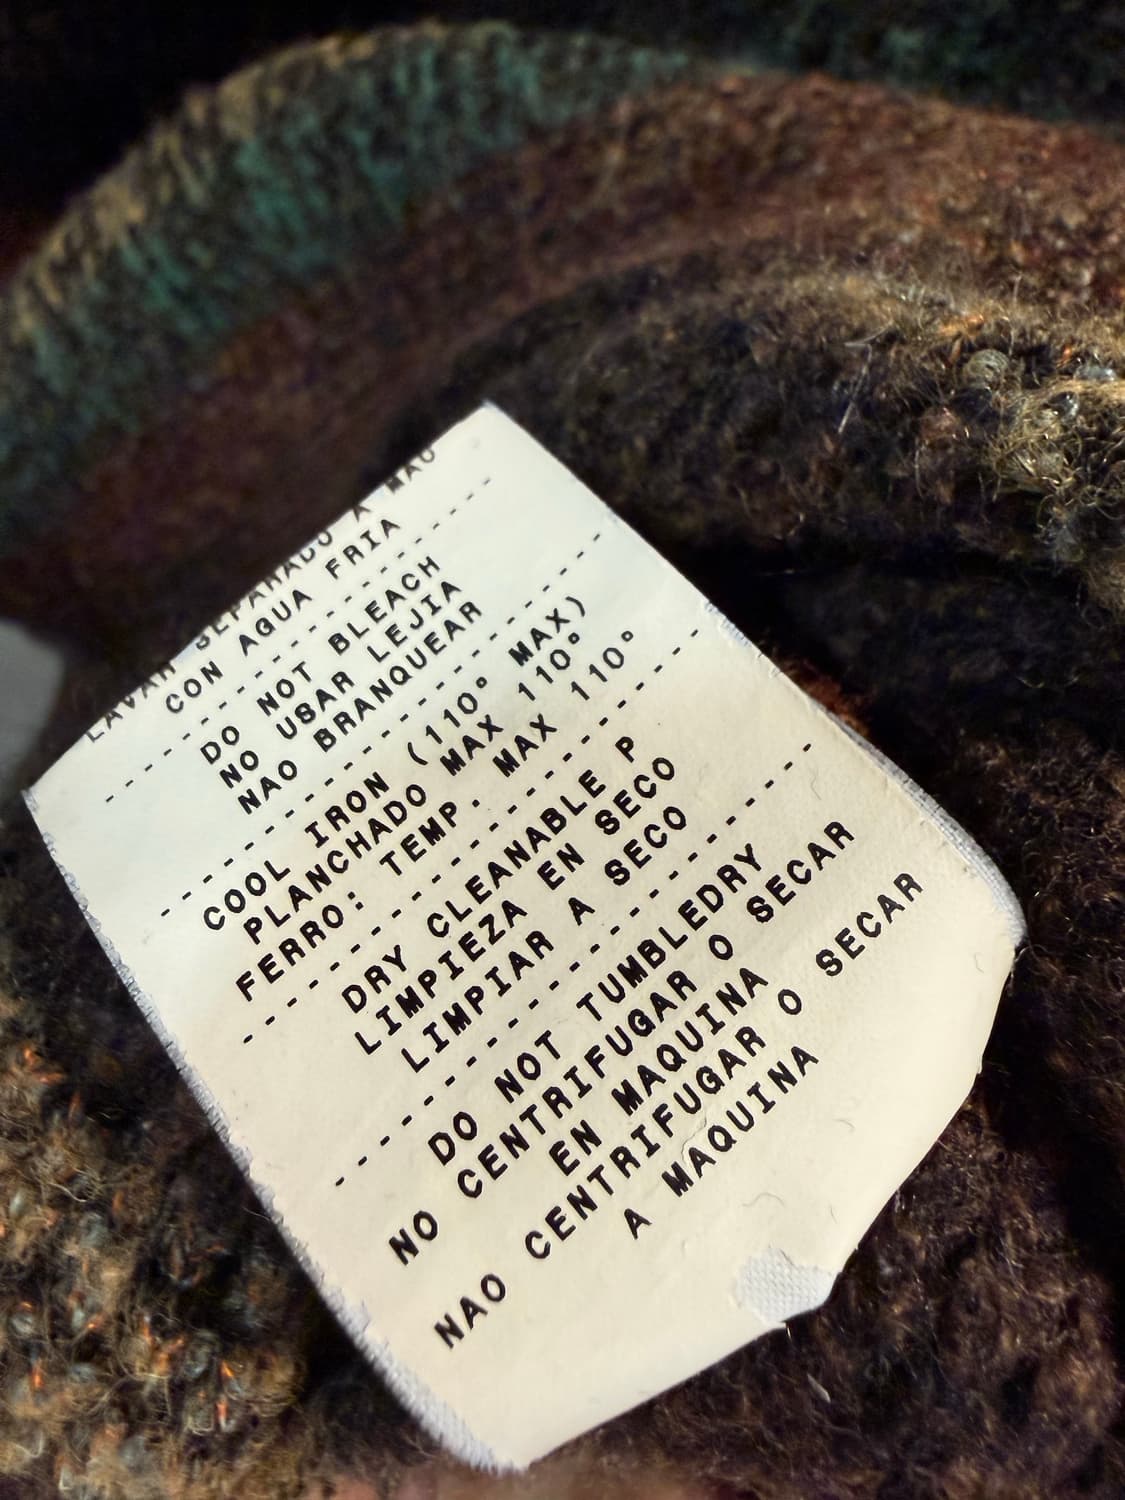 LAVAR SEPARADO A MAO
CON AGUA FRIA
--------------------
DO NOT BLEACH
NO USAR LEJIA
NAO BRANQUEAR
--------------------
COOL IRON (110° MAX)
PLANCHADO MAX 110°
FERRO: TEMP. MAX 110°
--------------------
DRY CLEANABLE P
LIMPIEZA EN SECO
LIMPIAR A SECO
--------------------
DO NOT TUMBLEDRY
NO CENTRIFUGAR O SECAR
EN MAQUINA
NAO CENTRIFUGAR O SECAR
A MAQUINA